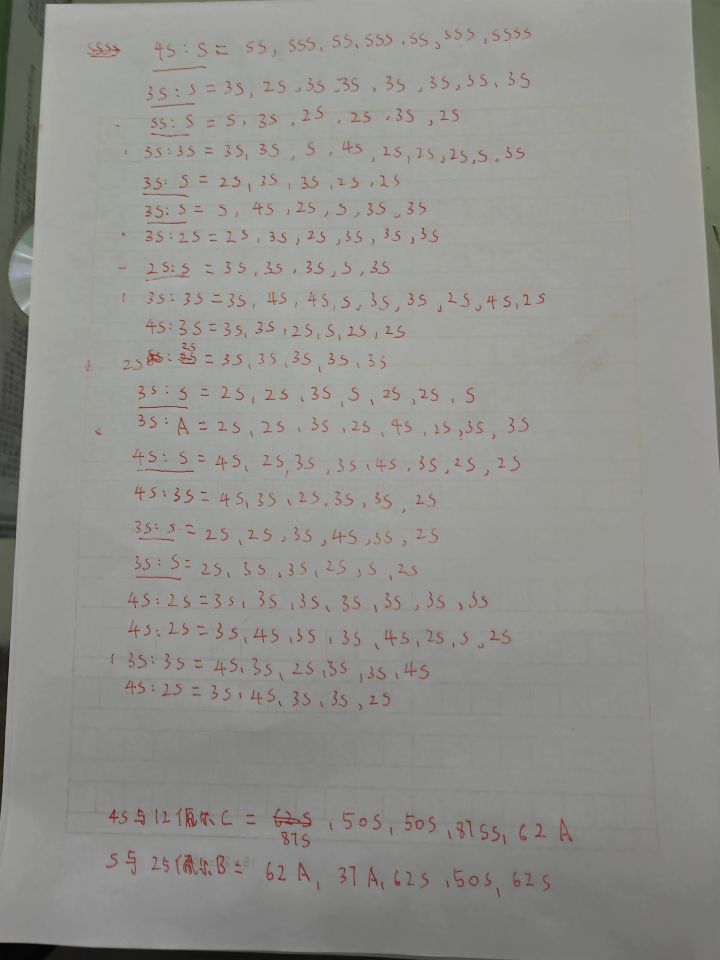 4S: S = SS, SSS, SS, SSS, SS, SSS, SSSS
3S: S = 3S, 2S, 3S, 3S, 3S, 3S, 3S, 3S
SS: S = S, 3S, 2S, 2S, 3S, 2S
3S: 3S = 3S, 3S, S, 4S, 2S, 2S, 2S, S, 3S
3S: S = 2S, 3S, 3S, 2S, 2S
3S: S = S, 4S, 2S, S, 3S, 3S
3S: 2S = 2S, 3S, 2S, 3S, 3S, 3S
2S: S = 3S, 3S, 3S, S, 3S
3S: 3S = 3S, 4S, 4S, S, 3S, 3S, 2S, 4S, 2S
4S: 3S = 3S, 3S, 2S, S, 2S, 2S
2S : 2S = 3S, 3S, 3S, 3S, 3S
3S: S = 2S, 2S, 3S, S, 2S, 2S, S
3S: A = 2S, 2S, 3S, 2S, 4S, 2S, 3S, 3S
4S: S = 4S, 2S, 3S, 3S, 4S, 3S, 2S, 2S
4S: 3S = 4S, 3S, 2S, 3S, 3S, 2S
3S: S = 2S, 2S, 3S, 4S, 3S, 2S
3S: S = 2S, 3S, 3S, 2S, S, 2S
4S: 2S = 3S, 3S, 3S, 3S, 3S, 3S, 3S
4S: 2S = 3S, 4S, 3S, 3S, 4S, 2S, S, 2S
3S: 3S = 4S, 3S, 2S, 3S, 3S, 4S
4S: 2S = 3S, 4S, 3S, 3S, 2S
4S与12佩尔C = 62S, 50S, 50S, 87SS, 62A
87S
S与25佩尔B = 62A, 37A, 62S, 50S, 62S